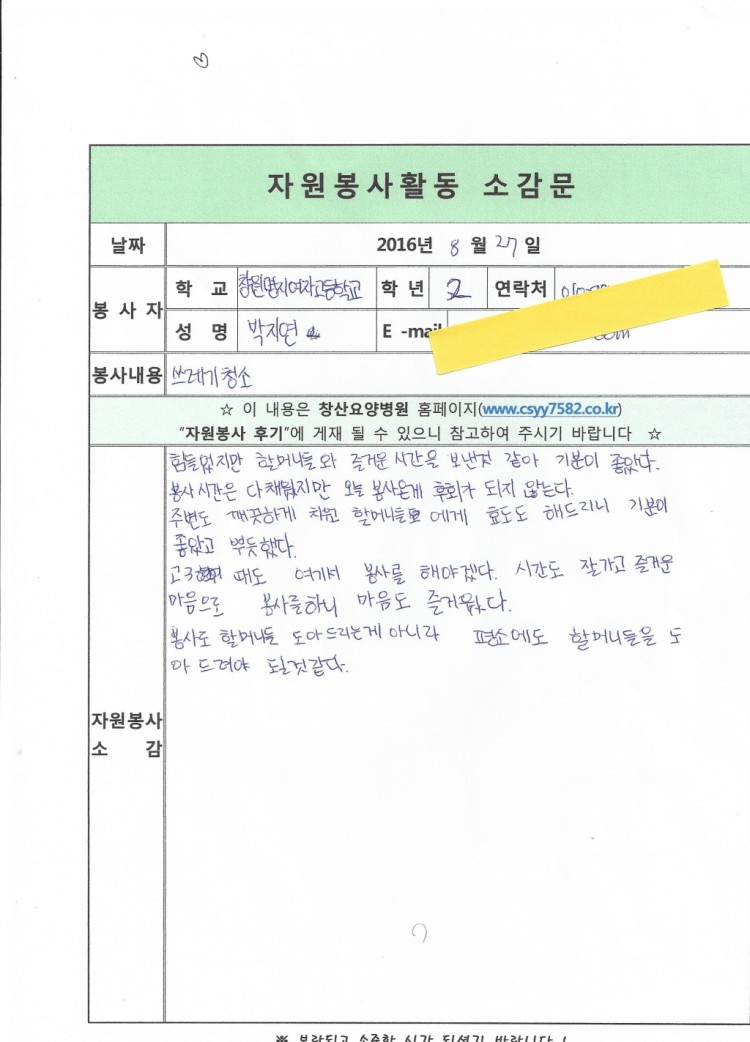 자원봉사활동 소감문
날짜 2016년 8월 27일
봉사자 학교 창원명지여자고등학교 학년 2 연락처 010
성명 박지연 E-mail com
봉사내용 쓰레기청소
☆ 이 내용은 창산요양병원 홈페이지(www.csyy7582.co.kr)
"자원봉사 후기"에 게재 될 수 있으니 참고하여 주시기 바랍니다 ☆
힘들었지만 할머니들와 즐거운 시간을 보낸것 같아 기분이 좋았다.
봉사시간은 다채웠지만 오늘 봉사온게 후회가 되지 않는다.
주변도 깨끗하게 치원 할머니들 에게 효도도 해드리니 기분이
좋았고 뿌듯했다.
고3 때도 여기서 봉사를 해야겠다. 시간도 잘가고 즐거운
마음으로 봉사를하니 마음도 즐거웠다.
봉사로 할머니들 도아드리는게 아니라 평소에도 할머니들을 도
아 드려야 될것같다.
자원봉사
소 감
※ 보람되고 소중한 시간 되셨기 바랍니다 !